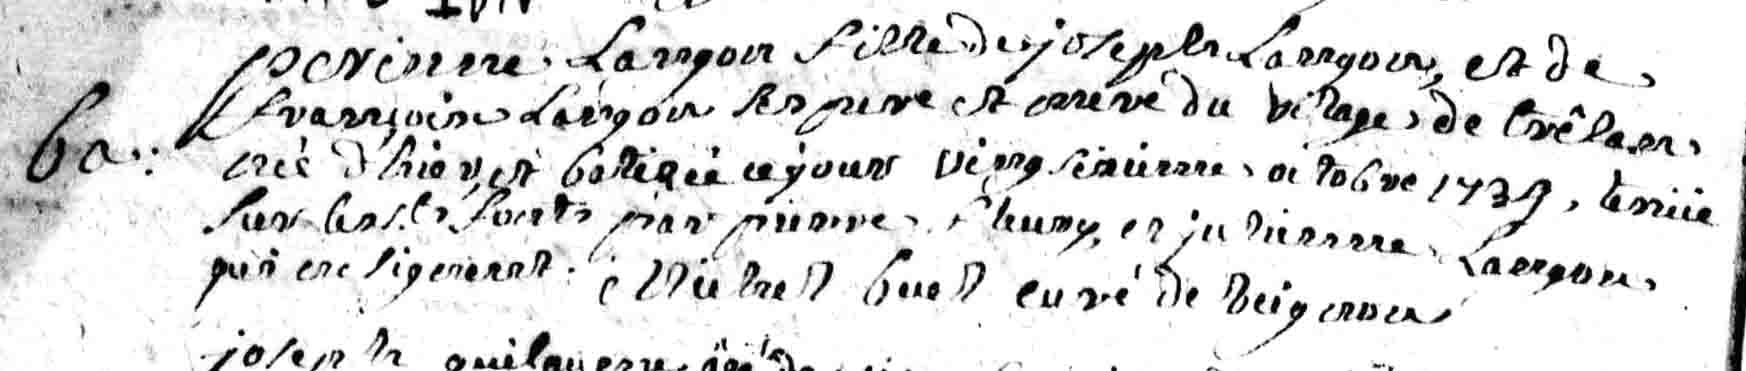 perinne Langou fille de joseph Langou, et de
ba: francoise Langou ses pere et mere du vilage de trêlan
née d'hier, et batisée ce jour vingsixieme octobre 1739, tenüe
sur les sts fonts par pierre fleury, et julienne Langou
qui ne signent. Michel buet curé de beignon
joseph